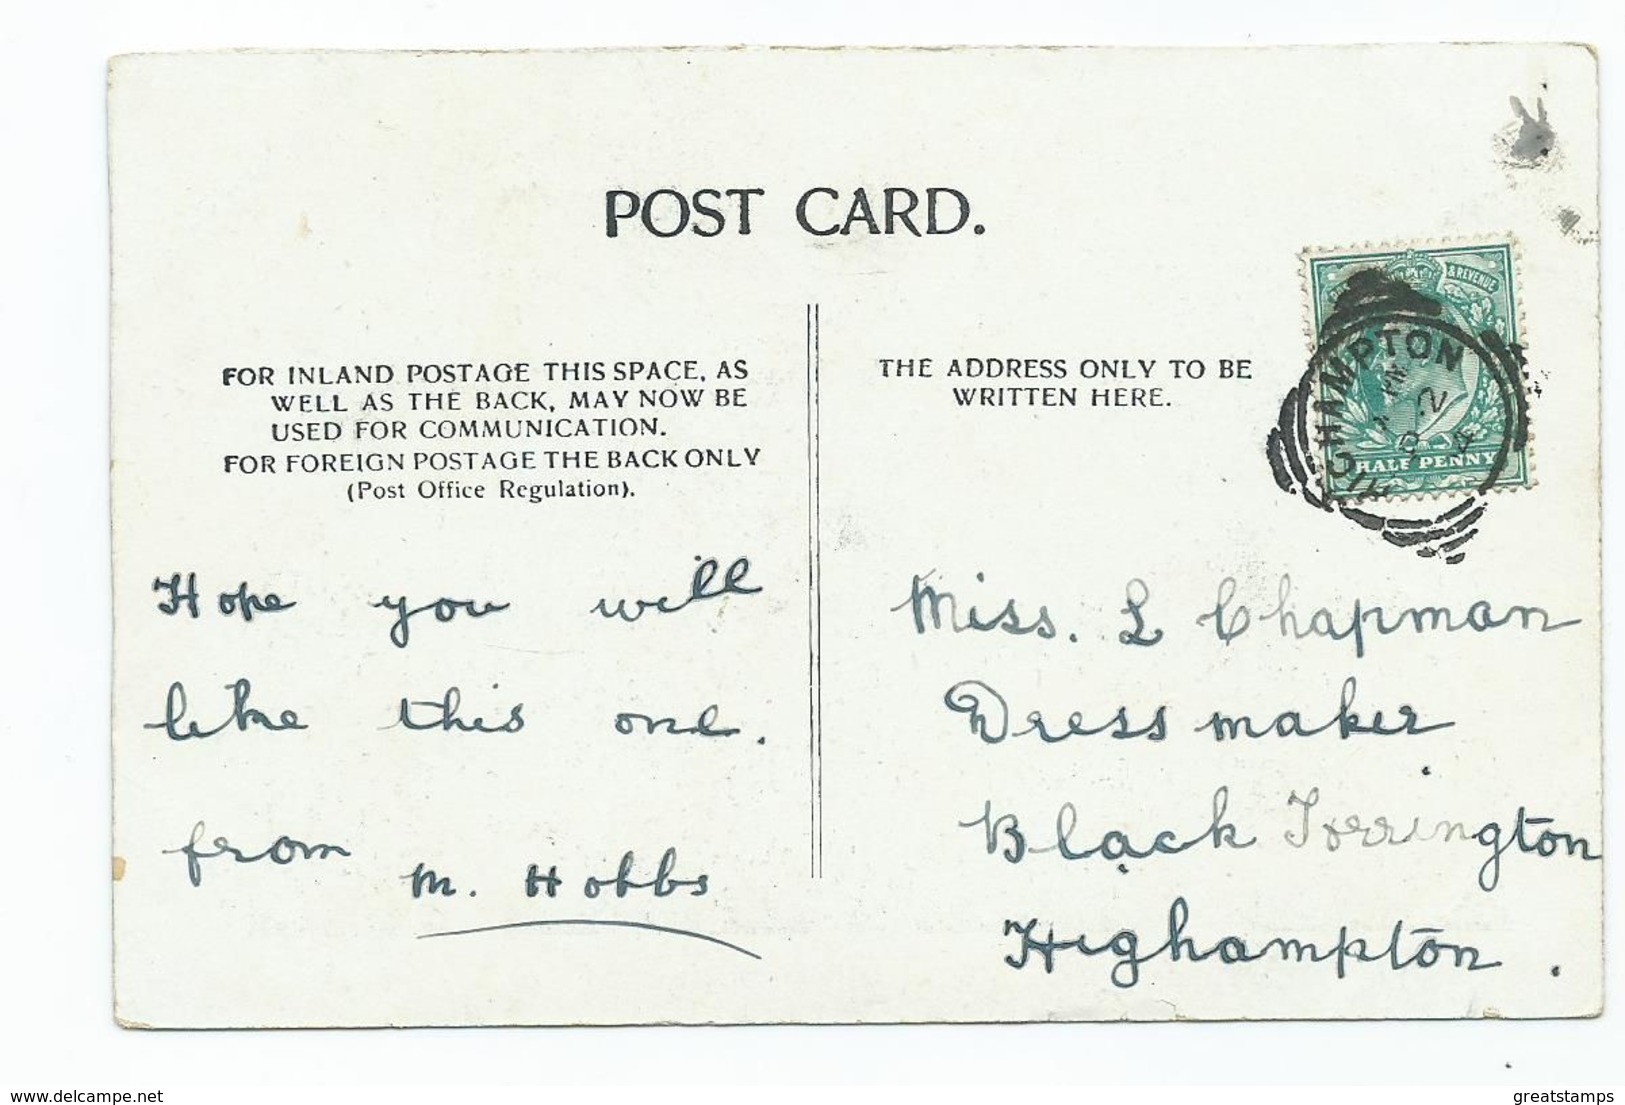 POST CARD.
FOR INLAND POSTAGE THIS SPACE, AS
WELL AS THE BACK, MAY NOW BE
USED FOR COMMUNICATION.
FOR FOREIGN POSTAGE THE BACK ONLY
(Post Office Regulation).
THE ADDRESS ONLY TO BE
WRITTEN HERE.
& REVENUE
HALF PENNY
HIGHAMPTON
Hope you will
like this one.
from M. Hobbs
Miss. L Chapman
Dress maker
Black Torrington
Highampton.
www.delcampe.net
greatstamps